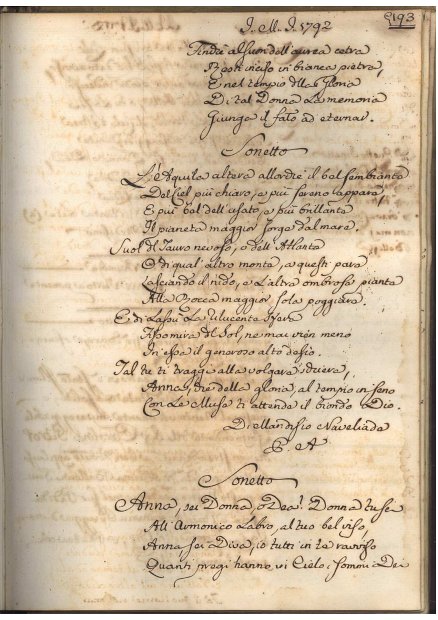 193
J. M. J. 1792
Finché al suon dell'aurea cetra
Resti inciso in bianca pietra,
E nel tempio della Gloria
Di tal Donna La memoria
Giunga il fato ad eternar.
Sonetto
L'Aquila altera allorché il bel sembiante
Del Ciel più chiaro, e più sereno appare,
E più bel dell'usato, e più brillante
Il pianeta maggior sorge dal mare.
Suol del Tauro nevoso, o dell'Atlante
O di qual altro monta, a questi pare
Lasciando il nido, e L'altre ombrose piante
Alla Rocca maggior sola poggiare.
E di Lassù La rilucente
del Sol, ne mai vien meno
In essa il generoso alto desio.
Tal tu ti traggi alla volgare schiera,
Anna, che della gloria, al tempio in seno
Con Le Muse ti attende il biondo Dio.
Di Mannisio Naveliade
P. A
Sonetto
Anna, sei Donna, o Dea? Donna tu sei
All'Armonico Labro, al tuo bel viso,
Anna sei Diva, io tutti in te ravviso
Quanti pregi hanno, in Cielo i sommi Dei